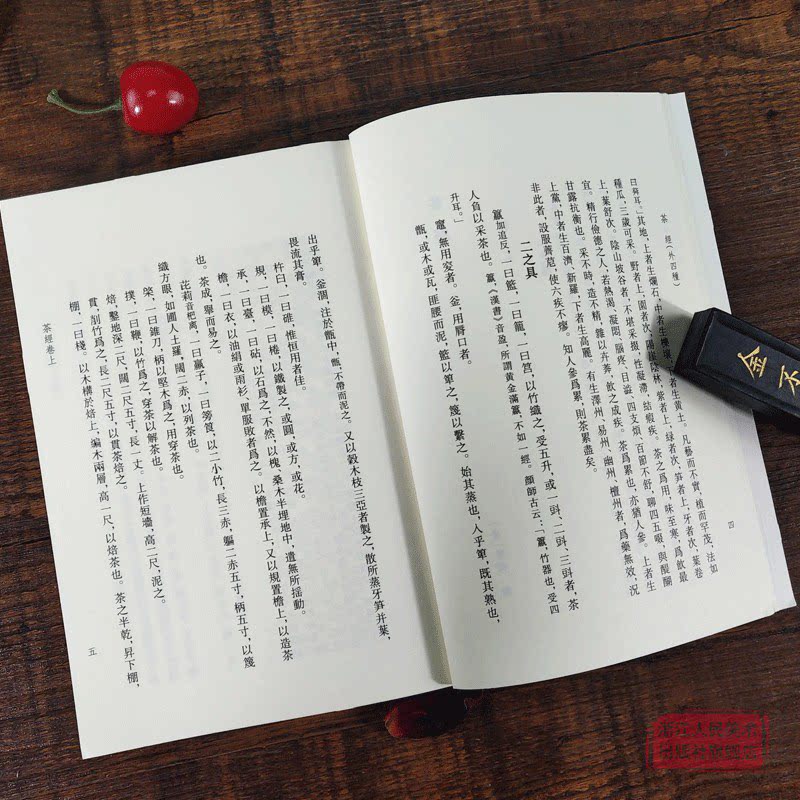 茶　經(外四種)
四
曰荈耳。」其地，上者生爛石，中者生櫟壤，者生黃土。凡藝而不實，植而罕茂，法如
種瓜，三歲可采。野者上，園者次。陽崖陰林，紫者上，緑者次，笋者上，牙者次，葉卷
上，葉舒次。陰山坡谷者，不堪采掇，性凝滯，結瘕疾。茶之爲用，味至寒，爲飲最
宜。精行儉德之人，若熱渴、凝悶、腦疼、目澀、四支煩、百節不舒，聊四五啜，與醍醐
甘露抗衡也。采不時，造不精，雜以卉莽，飲之成疾。茶爲累也，亦猶人參。上者生
上黨，中者生百濟、新羅，下者生高麗。有生澤州、易州、幽州、檀州者，爲藥無效，況
非此者，設服薺苨，使六疾不瘳。知人參爲累，則茶累盡矣。
二之具
籯加追反，一曰籃，一曰籠，一曰筥，以竹織之，受五升，或一㪷、二㪷、三㪷者，茶
人負以采茶也。籯，《漢書》音盈，所謂黃金滿籯，不如一經。顏師古云：「籯，竹器也，受四
升耳。」
竈，無用突者。釜，用唇口者。
甑，或木或瓦，匪腰而泥，籃以箄之，篾以繫之。始其蒸也，入乎箄，既其熟也，
出乎箄。釜涸，注於甑中，甑，不帶而泥之。又以榖木枝三亞者製之，散所蒸牙笋并葉，
畏流其膏。
杵臼，一曰碓，惟恒用者佳。
規，一曰模，一曰棬，以鐵製之，或圓，或方，或花。
承，一曰臺，一曰砧，以石爲之，不然，以槐、桑木半埋地中，遣無所摇動。
檐，一曰衣，以油絹或雨衫、單服敗者爲之。以檐置承上，又以規置檐上，以造茶
也。茶成，舉而易之。
芘莉音杷离，一曰籝子，一曰篣筤，以二小竹，長三赤，軀二赤五寸，柄五寸，以篾
織方眼，如圃人土羅，闊二赤，以列茶也。
棨，一曰錐刀，柄以堅木爲之，用穿茶也。
撲，一曰鞭，以竹爲之，穿茶以解茶也。
焙，鑿地深二尺，闊二尺五寸，長一丈。上作短墻，高二尺，泥之。
貫，削竹爲之，長二尺五寸，以貫茶焙之。
棚，一曰棧。以木構於焙上，編木兩層，高一尺，以焙茶也。茶之半乾，昇下棚，
茶經卷上
五
金不
浙江人民美术